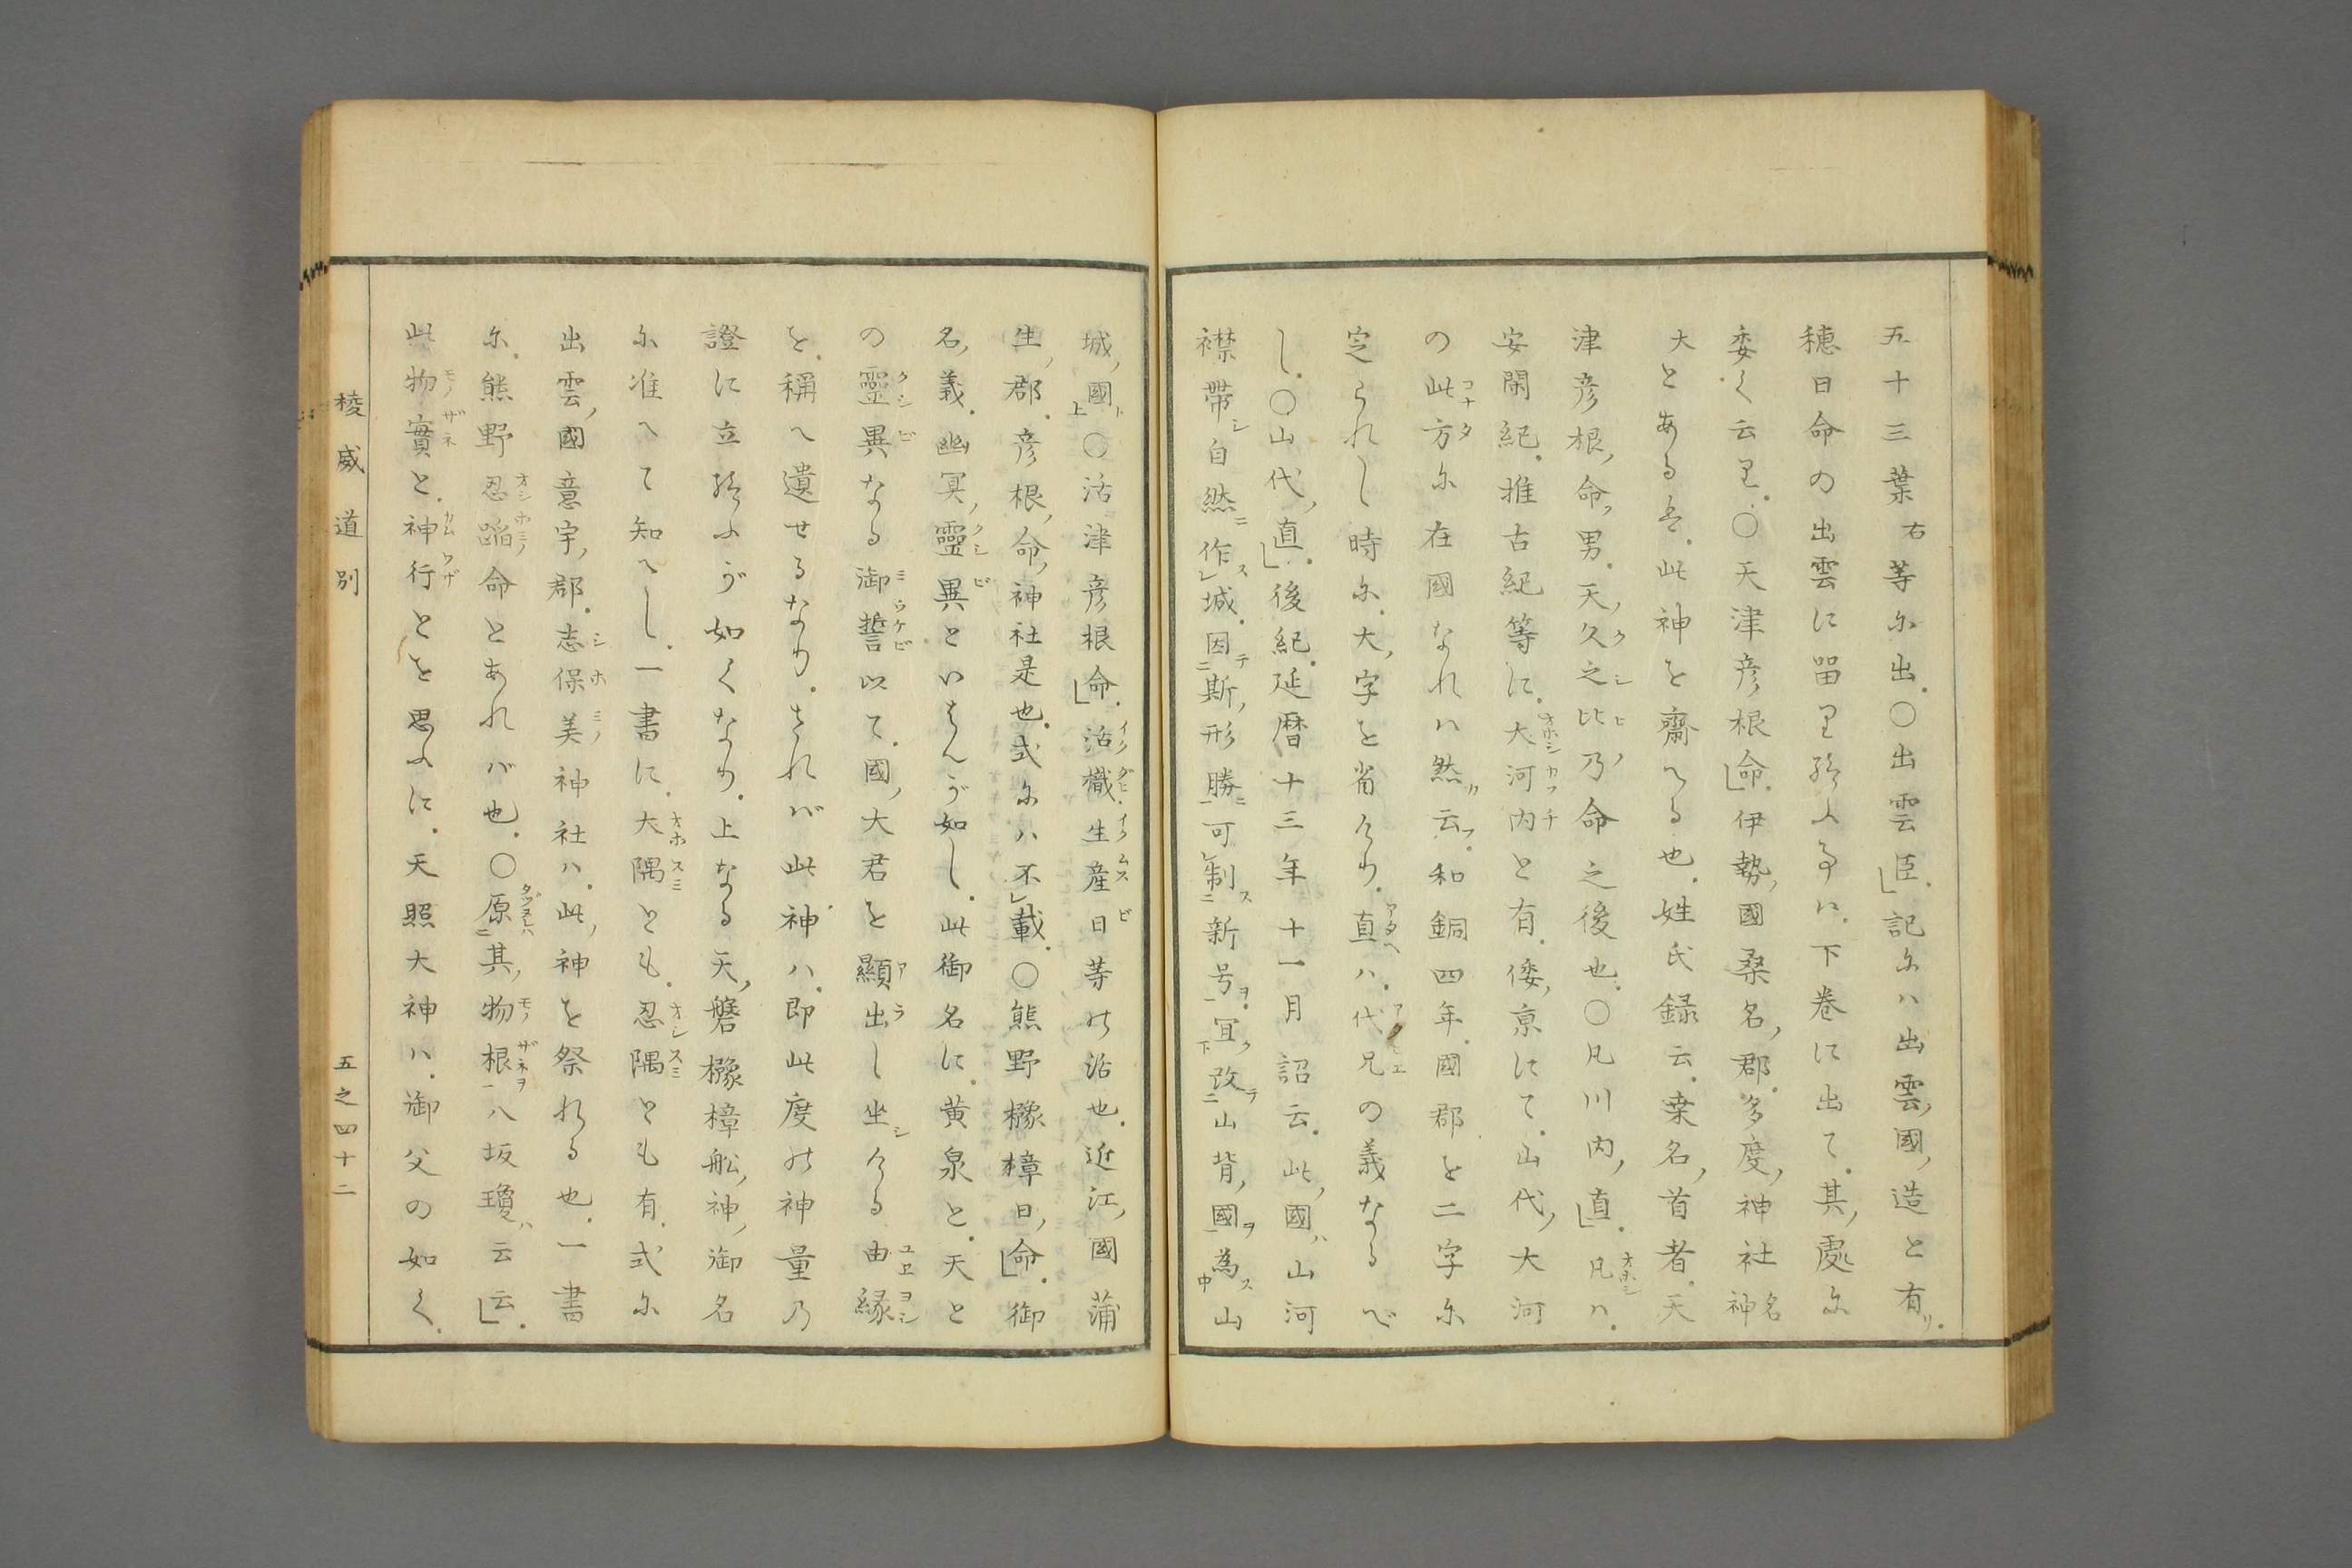 五十三葉右等尓出。〇出雲臣」。記尓ハ出雲國造と有リ。
穂日命の出雲に留里給ふ事ハ。下卷に出て。其處尓
委く云里。〇天津彦根命」。伊勢國桑名郡。多度神社名神
大とある是。此神を齋へる也。姓氏録云。桒名首者。天
津彦根命男。天久之比乃命之後也。〇凡川内直」。凡ハ。
安閑紀。推古紀等に。大河内と有。倭京にて。山代大河
の此方尓在國なれハ然云。和銅四年。國郡を二字尓
定られし時尓。大字を省けり。直ハ。代兄の義なるべ
し。〇山代直」。後紀。延暦十三年十一月詔云。此國ハ山河
襟帶シ自然ニ作ス城。因テ斯形勝ニ可制ス新号ヲ。宜ク改ラ山背國ヲ為ス山
城國ト。〇活津彦根命」。活樴。生産日等の活也。近江國蒲
生郡。彦根命神社是也。式尓ハ不載。〇熊野櫲樟日命」。御
名義。幽冥靈異といはんが如し。此御名に。黄泉と。天と
の靈異なる御誓以て。國大君を顯出し坐ける由縁
を。稱へ遺せるなり。されば此神ハ。即此度の神量乃
證に立給ふが如くなり。上なる天磐櫲樟舩神御名
尓准へて知へし。一書に。大隅とも。忍隅とも有。式尓
出雲國意宇郡。志保美神社ハ。此神を祭れる也。一書
尓。熊野忍蹈命とあれば也。〇原其物根八坂瓊ハ云云」。
此物實と。神行とを思ふに。天照大神ハ。御父の如く。
稜威道別
五之四十二